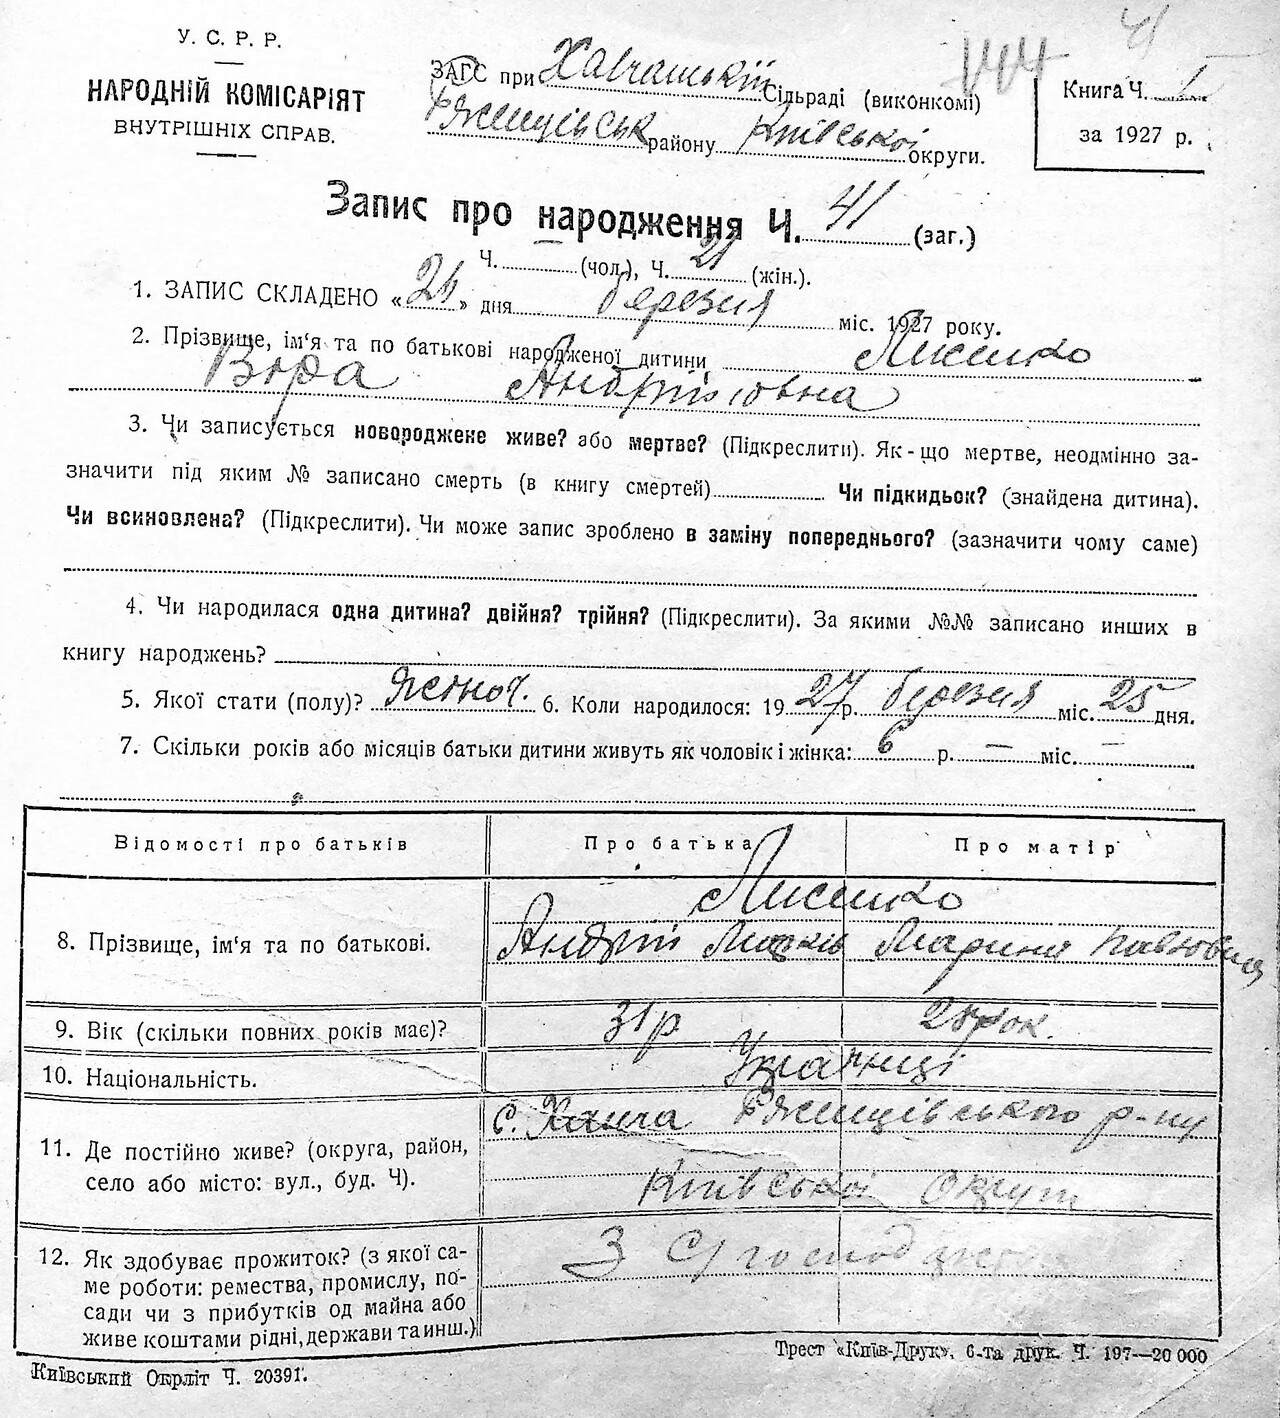 41
144
У. С. Р. Р.
НАРОДНІЙ КОМІСАРІЯТ
ВНУТРІШНІХ СПРАВ.
ЗАГС при Хавчанській Сільраді (виконкомі)
Ржищівськ району Київської округи.
Книга Ч. 1
за 1927 р.
Запис про народження Ч. 41 (заг.)
Ч. (чол.), Ч. 21 (жін.).
1. ЗАПИС СКЛАДЕНО « 26 » дня березня міс. 1927 року.
2. Прізвище, ім'я та по батькові народженої дитини Лисенко
Віра Андріївна
3. Чи записується новороджене живе? або мертве? (Підкреслити). Як-що мертве, неодмінно за-
значити під яким № записано смерть (в книгу смертей) Чи підкидьок? (знайдена дитина).
Чи всиновлена? (Підкреслити). Чи може запис зроблено в заміну попереднього? (зазначити чому саме)
4. Чи народилася одна дитина? двійня? трійня? (Підкреслити). За якими №№ записано инших в
книгу народжень?
5. Якої стати (полу)? жіноч. 6. Коли народилося: 19 27 р. березня міс. 25 дня.
7. Скільки років або місяців батьки дитини живуть як чоловік і жінка: 6 р. — міс. —
Відомості про батьків Про батька Про матір
Лисенко
8. Прізвище, ім'я та по батькові. Андрій Марків Марина Павловна
9. Вік (скільки повних років має)? 31 р рок.
10. Національність. Українці
с. Ханча Ржищівського р-ну
11. Де постійно живе? (округа, район,
село або місто: вул., буд. Ч). Київської округи
12. Як здобуває прожиток? (з якої са- З С/господарства
ме роботи: ремества, промислу, по-
сади чи з прибутків од майна або
живе коштами рідні, держави та инш.)
Київський Окрліт Ч. 20391.
Трест «Київ-Друк», 6-та друк. Ч. 197—20 000